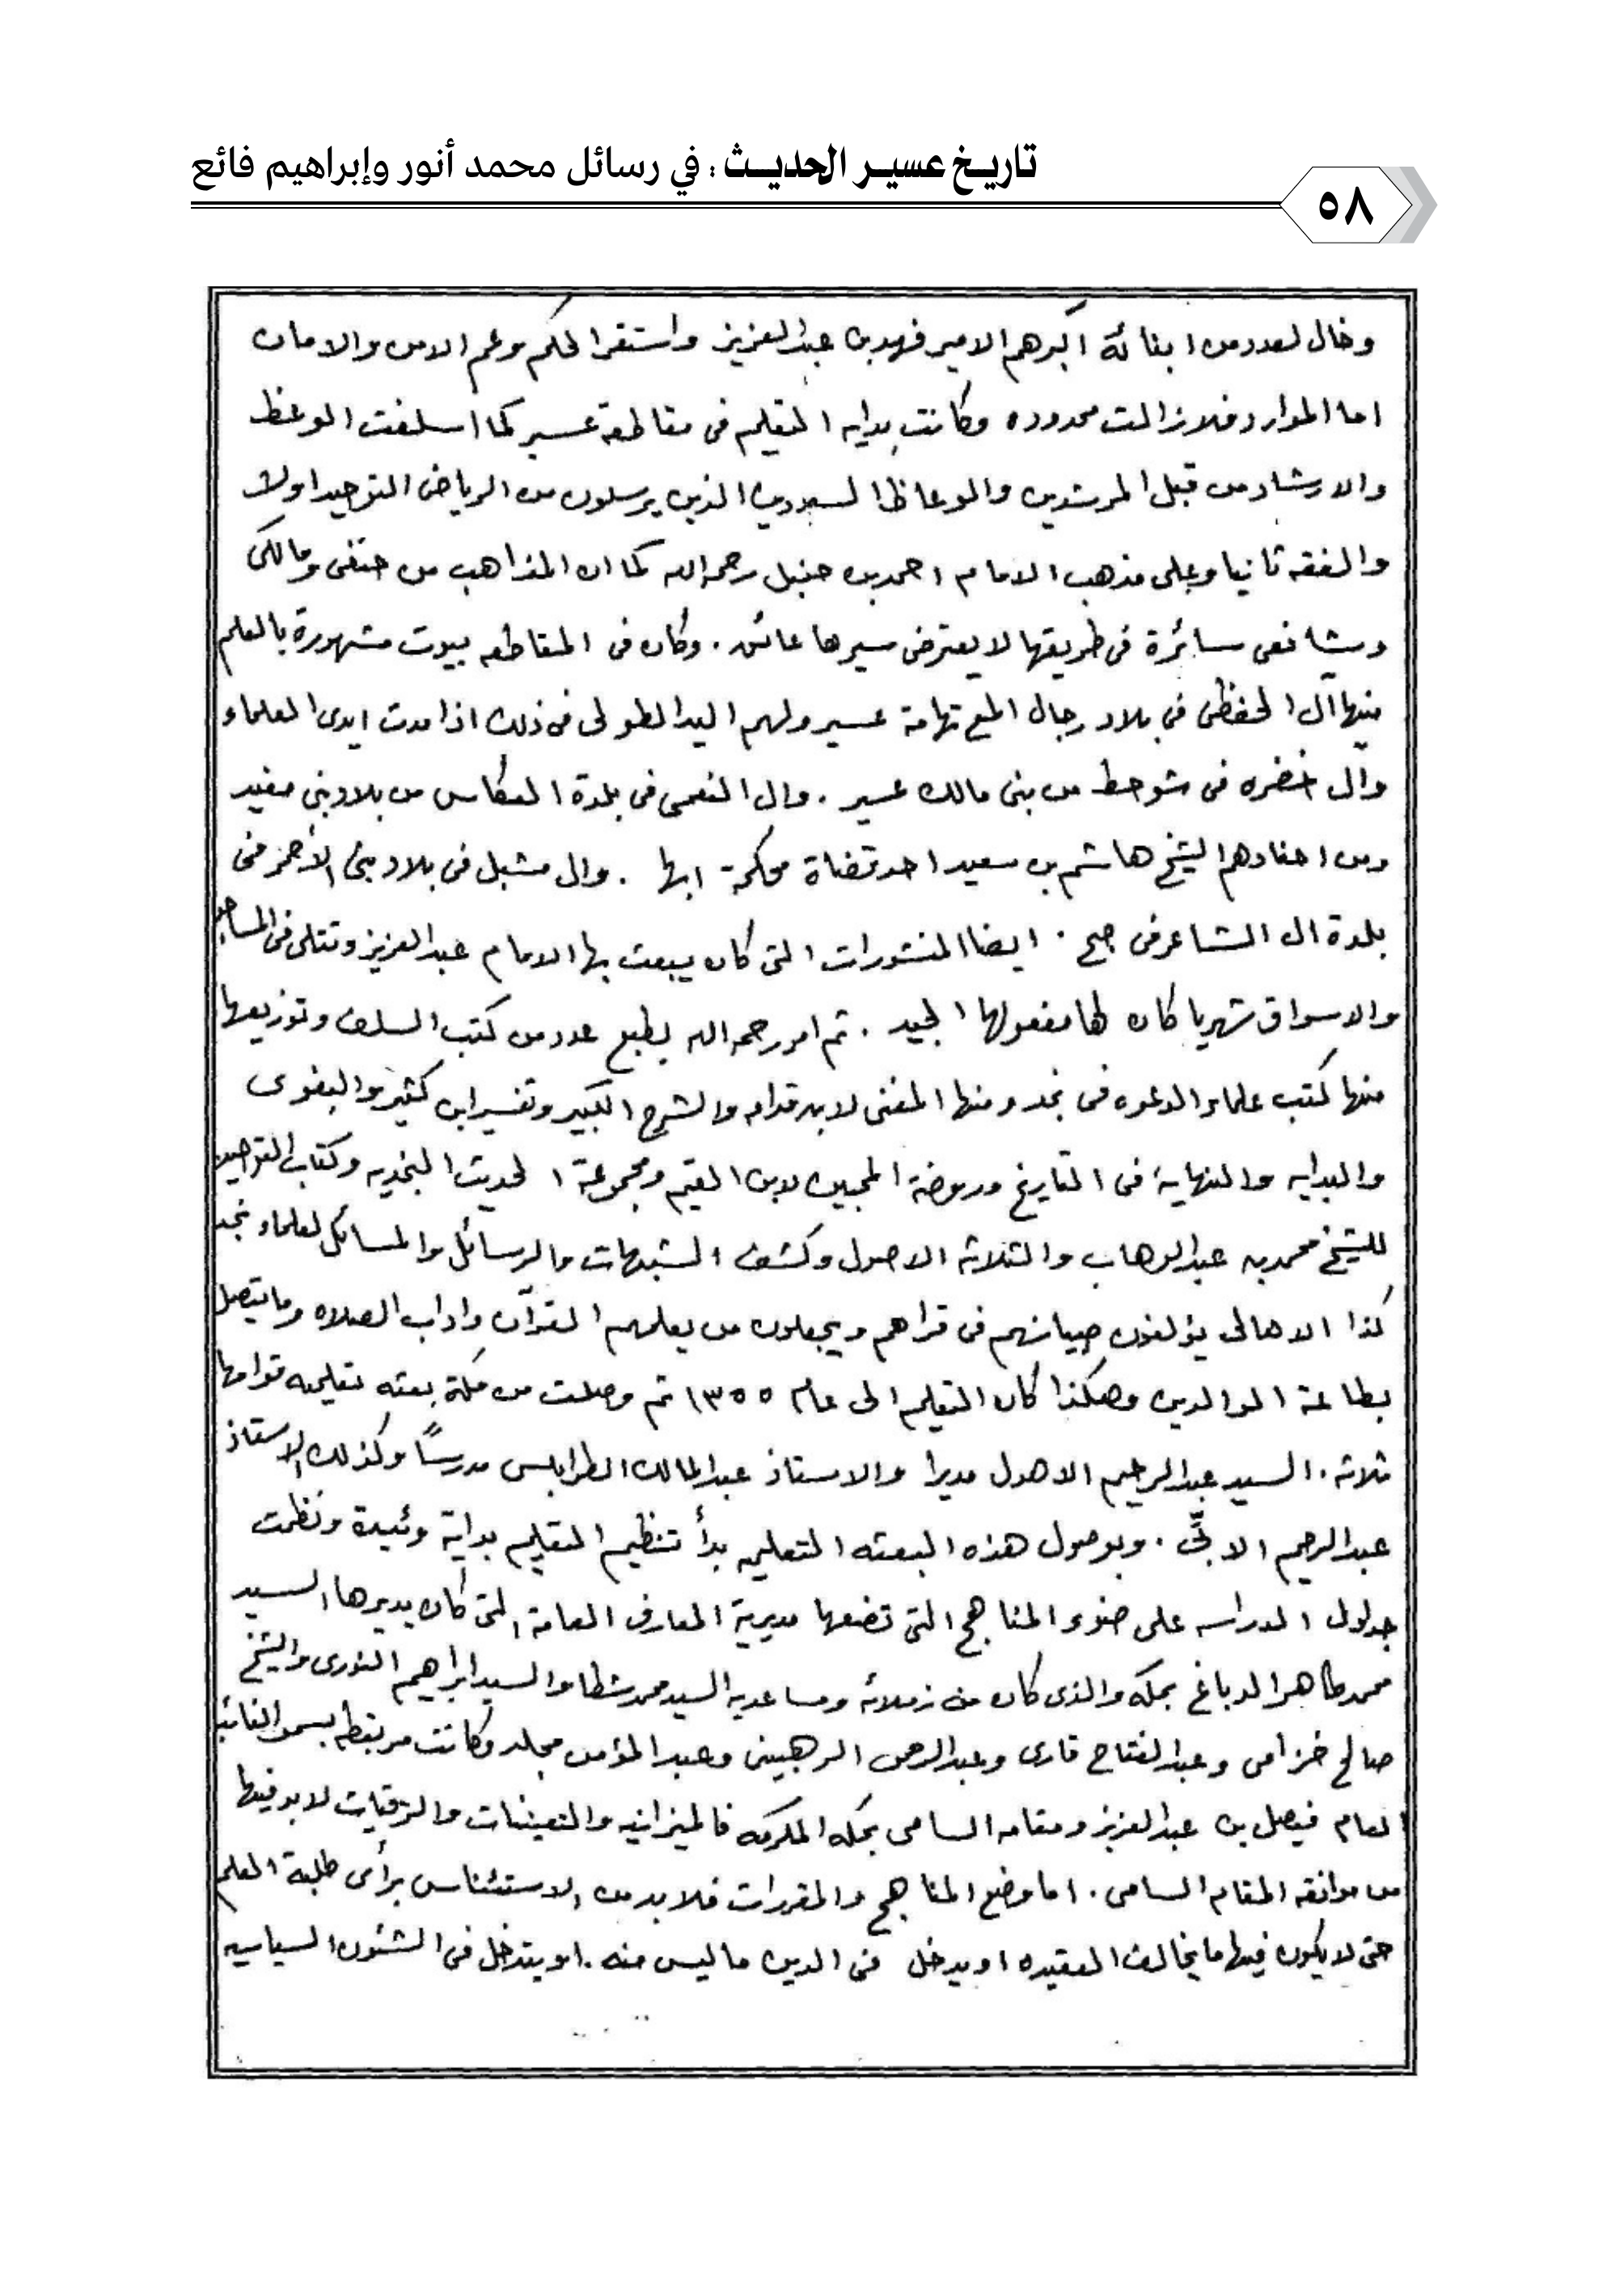 تاريخ عسير الحديث : في رسائل محمد أنور وإبراهيم فائع
٥٨
وخال لعدد من ابنائه اكبرهم الامير فهد بن عبدالعزيز واستقر الحكم وعم الامن والامان
اما الموارد فلازالت محدوده وكانت بدايه التعليم فى مقاطعة عسير كما اسلفت الوعظ
والارشاد من قبل المرشدين والوعاظ السعوديين الذين يرسلون من الرياض التوحيد اولا
والفقه ثانيا وعلى مذهب الامام احمد بن حنبل رحمه الله كما ان المذاهب من حنفى ومالكى
وشافعى سائرة فى طريقها لا يعترض سيرها عائق . وكان فى المقاطعه بيوت مشهورة بالعلم
منها آل الحفظى فى بلاد رجال المع تهامة عسير ولهم اليد الطولى فى ذلك اذا مدت ايدى العلماء
وال خضره فى شوحط من بنى مالك عسير . وال النعمى فى بلدة العكاس من بلاد بنى مغيد
ومن احفادهم الشيخ هاشم بن سعيد احد قضاة محكمة ابها . وال مشبل فى بلاد بنى الأحمر فى
بلدة ال الشاعر فى صبح . ايضا المنشورات التى كان يبعث بها الامام عبدالعزيز وتتلى فى المساجد
والاسواق شهريا كان لها مفعولها الجيد . ثم امر رحمه الله بطبع عدد من كتب السلف وتوزيعها
منها كتب علماء الدعوه فى نجد ومنها المغنى لابن قدامه والشرح الكبير وتفسير ابن كثير والبغوى
والبدايه والنهاية فى التاريخ وروضة المحبين لابن القيم ومجموعة الحديث النجديه وكتاب التوحيد
للشيخ محمد بن عبدالوهاب والثلاثه الاصول وكشف الشبهات والرسائل والمسائل لعلماء نجد
كذا الاهالى يؤلفون صبيانهم فى قراهم ويجعلون من يعلمهم القرآن واداب الصلاه وما يتصل
بطاعة الوالدين وهكذا كان التعليم الى عام ١٣٥٥ ثم وصلت من مكة بعثه تعليميه قوامها
ثلاثه . السيد عبدالرحيم الاهدل مديرا والاستاذ عبدالمالك الطرابلسى مدرساً وكذلك الاستاذ
عبدالرحيم الابىّ . وبوصول هذه البعثه التعليميه بدأ تنظيم التعليم بداية وئيدة ونظمت
جداول الدراسه على ضوء المناهج التى تضعها مديرية المعارف العامة التى كان يديرها السيد
محمد طاهر الدباغ بمكه والذى كان من زملائه ومساعديه السيد محمد شطا والسيد ابراهيم النورى والشيخ
صالح خزامى وعبدالفتاح قارى وعبدالرحمن الرهبينى وعبدالمؤمن مجلد وكانت مرتبطه بسمو النائب
العام فيصل بن عبدالعزيز ومقامه السامى بمكه المكرمه فالميزانيه والتعيينات والترقيات لابد فيها
من موافقه المقام السامى . اما وضع المناهج والمقررات فلابد من الاستئناس برأى طلبة العلم
حتى لا يكون فيها ما يخالف العقيده او يدخل فى الدين ما ليس منه . او يتدخل فى الشئون السياسيه